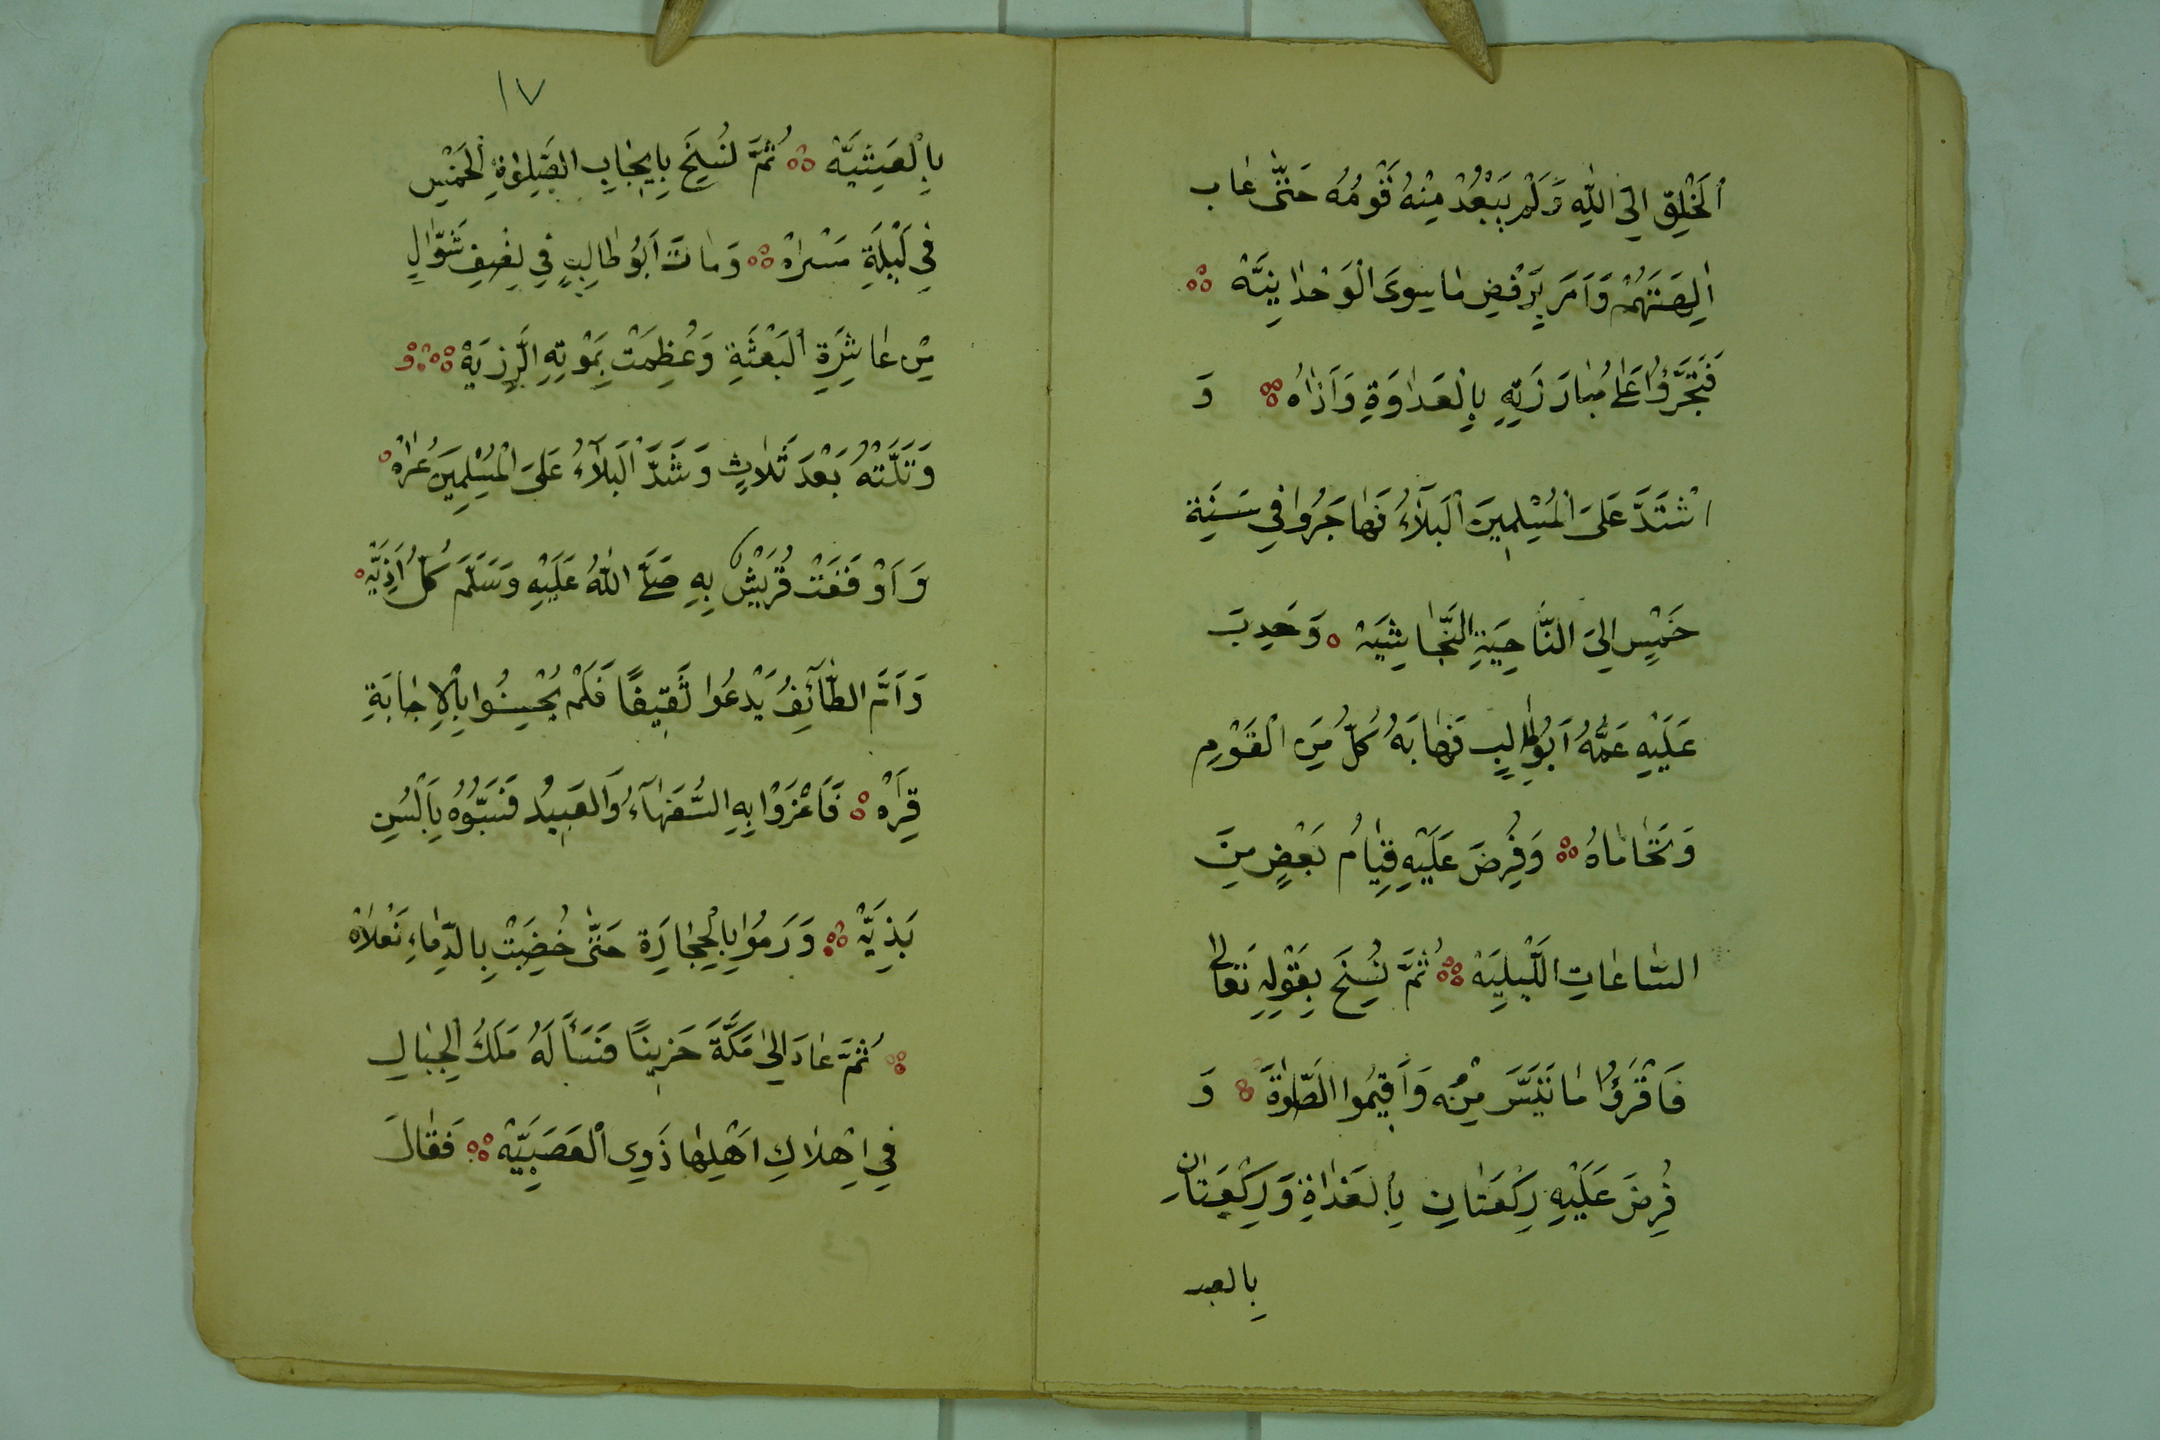 اَلْخَلْقِ اِلَى اللهِ وَلَمْ يَبْعُدْ مِنْهُ قَوْمُهُ حَتّٰى عَابَ
اٰلِهَتَهُمْ وَاَمَرَ بِرَفْضِ مَا سِوَى الْوَحْدَانِيَّهْ
فَتَجَرَّؤُا عَلٰى مُبَارَزَتِهِ بِالْعَدَاوَةِ وَاَذَاهُ وَ
اشْتَدَّ عَلَى الْمُسْلِمِينَ الْبَلَآءُ فَهَاجَرُوا فِي سَنَةِ
خَمْسٍ اِلَى النَّاحِيَةِ النَّجَاشِيَهْ وَحَدِبَ
عَلَيْهِ عَمُّهُ اَبُو طَالِبٍ فَهَابَهُ كُلٌّ مِنَ الْقَوْمِ
وَتَحَامَاهُ وَفُرِضَ عَلَيْهِ قِيَامُ بَعْضٍ مِنَ
السَّاعَاتِ اللَّيْلِيَهْ ثُمَّ نُسِخَ بِقَوْلِهِ تَعَالٰى
فَاقْرَؤُا مَا تَيَسَّرَ مِنْهُ وَاَقِيمُوا الصَّلٰوةَ وَ
فُرِضَ عَلَيْهِ رَكْعَتَانِ بِالْغَدَاةِ وَرَكْعَتَانِ
بالعـ
١٧
بِالْعَشِيَّهْ ثُمَّ نُسِخَ بِاِيجَابِ الصَّلَوٰةِ الْخَمْسِ
فِي لَيْلَةِ مَسْرَاهْ وَمَاتَ اَبُو طَالِبٍ فِي نِصْفِ شَوَّالٍ
مِنْ عَاشِرَةِ الْبَعْثَةِ وَعَظُمَتْ بِمَوْتِهِ الرَّزِيَهْ وَ
وَتَلَتْهُ بَعْدَ ثَلَاثٍ وَشَدَّ الْبَلَآءُ عَلَى الْمُسْلِمِينَ عُرَاهْ
وَاَوْقَعَتْ قُرَيْشٌ بِهِ صَلَّى اللهُ عَلَيْهِ وَسَلَّمَ كُلَّ اَذِيَّهْ
وَاَمَّ الطَّآئِفَ يَدْعُوا ثَقِيفًا فَلَمْ يُحْسِنُوا بِالْاِجَابَةِ
قِرَاهْ فَاَغْرَوْا بِهِ السُّفَهَآءَ وَالْعَبِيدَ فَسَبُّوهُ بِاَلْسُنٍ
بَذِيَّهْ وَرَمَوْا بِالْحِجَارَةِ حَتّٰى خُضِبَتْ بِالدِّمَاءِ نَعْلَاهْ
ثُمَّ عَادَ اِلٰى مَكَّةَ حَزِينًا فَسَأَلَهُ مَلَكُ الْجِبَالِ
فِي اِهْلَاكِ اَهْلِهَا ذَوِى الْعَصَبِيَّهْ فَقَالَ